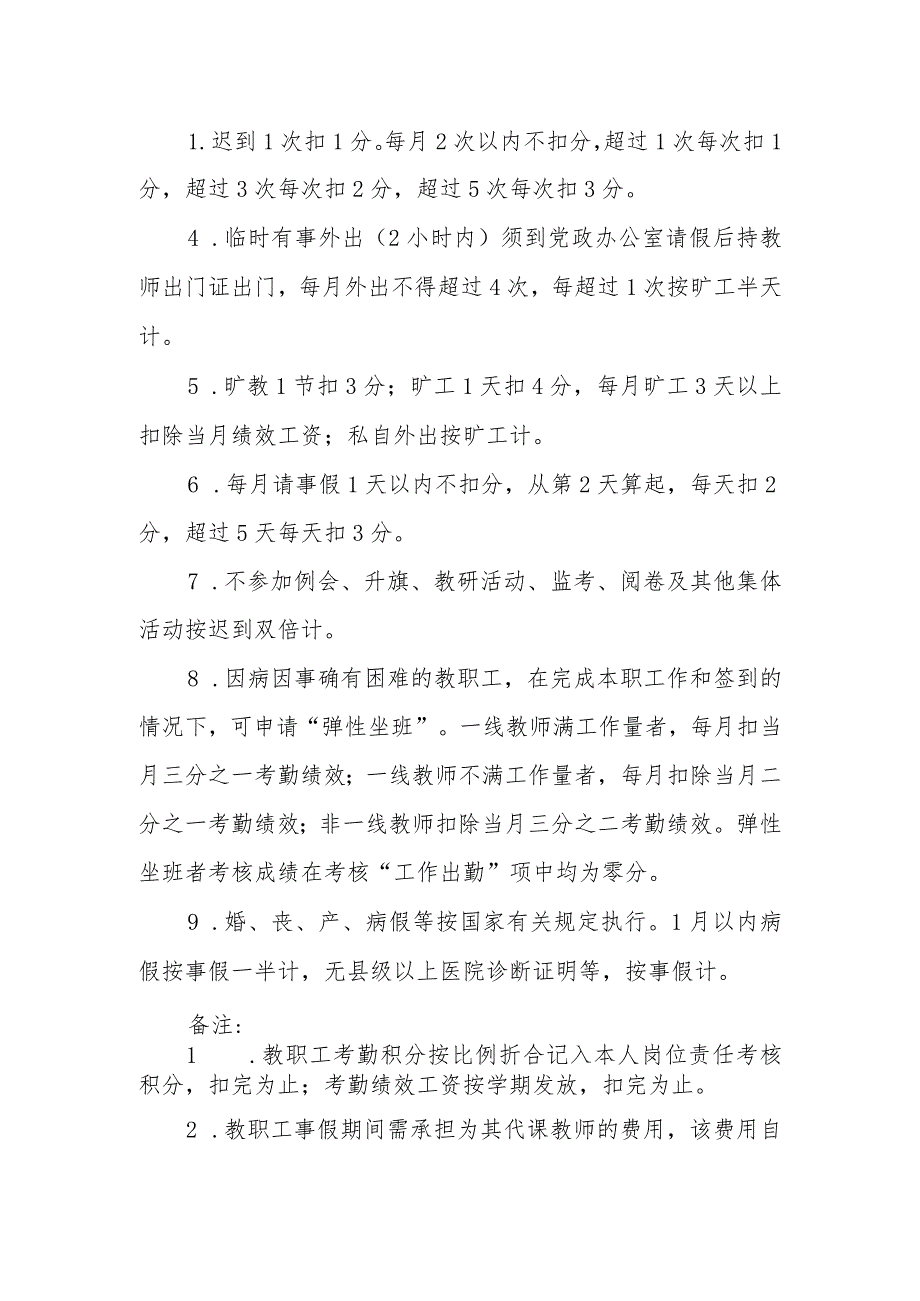 1.迟到1次扣1分。每月2次以内不扣分，超过1次每次扣1
分，超过3次每次扣2分，超过5次每次扣3分。
4 .临时有事外出（2小时内）须到党政办公室请假后持教
师出门证出门，每月外出不得超过4次，每超过1次按旷工半天
计。
5 .旷教1节扣3分；旷工1天扣4分，每月旷工3天以上
扣除当月绩效工资；私自外出按旷工计。
6 .每月请事假1天以内不扣分，从第2天算起，每天扣2
分，超过5天每天扣3分。
7 .不参加例会、升旗、教研活动、监考、阅卷及其他集体
活动按迟到双倍计。
8 .因病因事确有困难的教职工，在完成本职工作和签到的
情况下，可申请“弹性坐班”。一线教师满工作量者，每月扣当
月三分之一考勤绩效；一线教师不满工作量者，每月扣除当月二
分之一考勤绩效；非一线教师扣除当月三分之二考勤绩效。弹性
坐班者考核成绩在考核“工作出勤”项中均为零分。
9 .婚、丧、产、病假等按国家有关规定执行。1月以内病
假按事假一半计，无县级以上医院诊断证明等，按事假计。
备注:
1 .教职工考勤积分按比例折合记入本人岗位责任考核
积分，扣完为止；考勤绩效工资按学期发放，扣完为止。
2 .教职工事假期间需承担为其代课教师的费用，该费用自